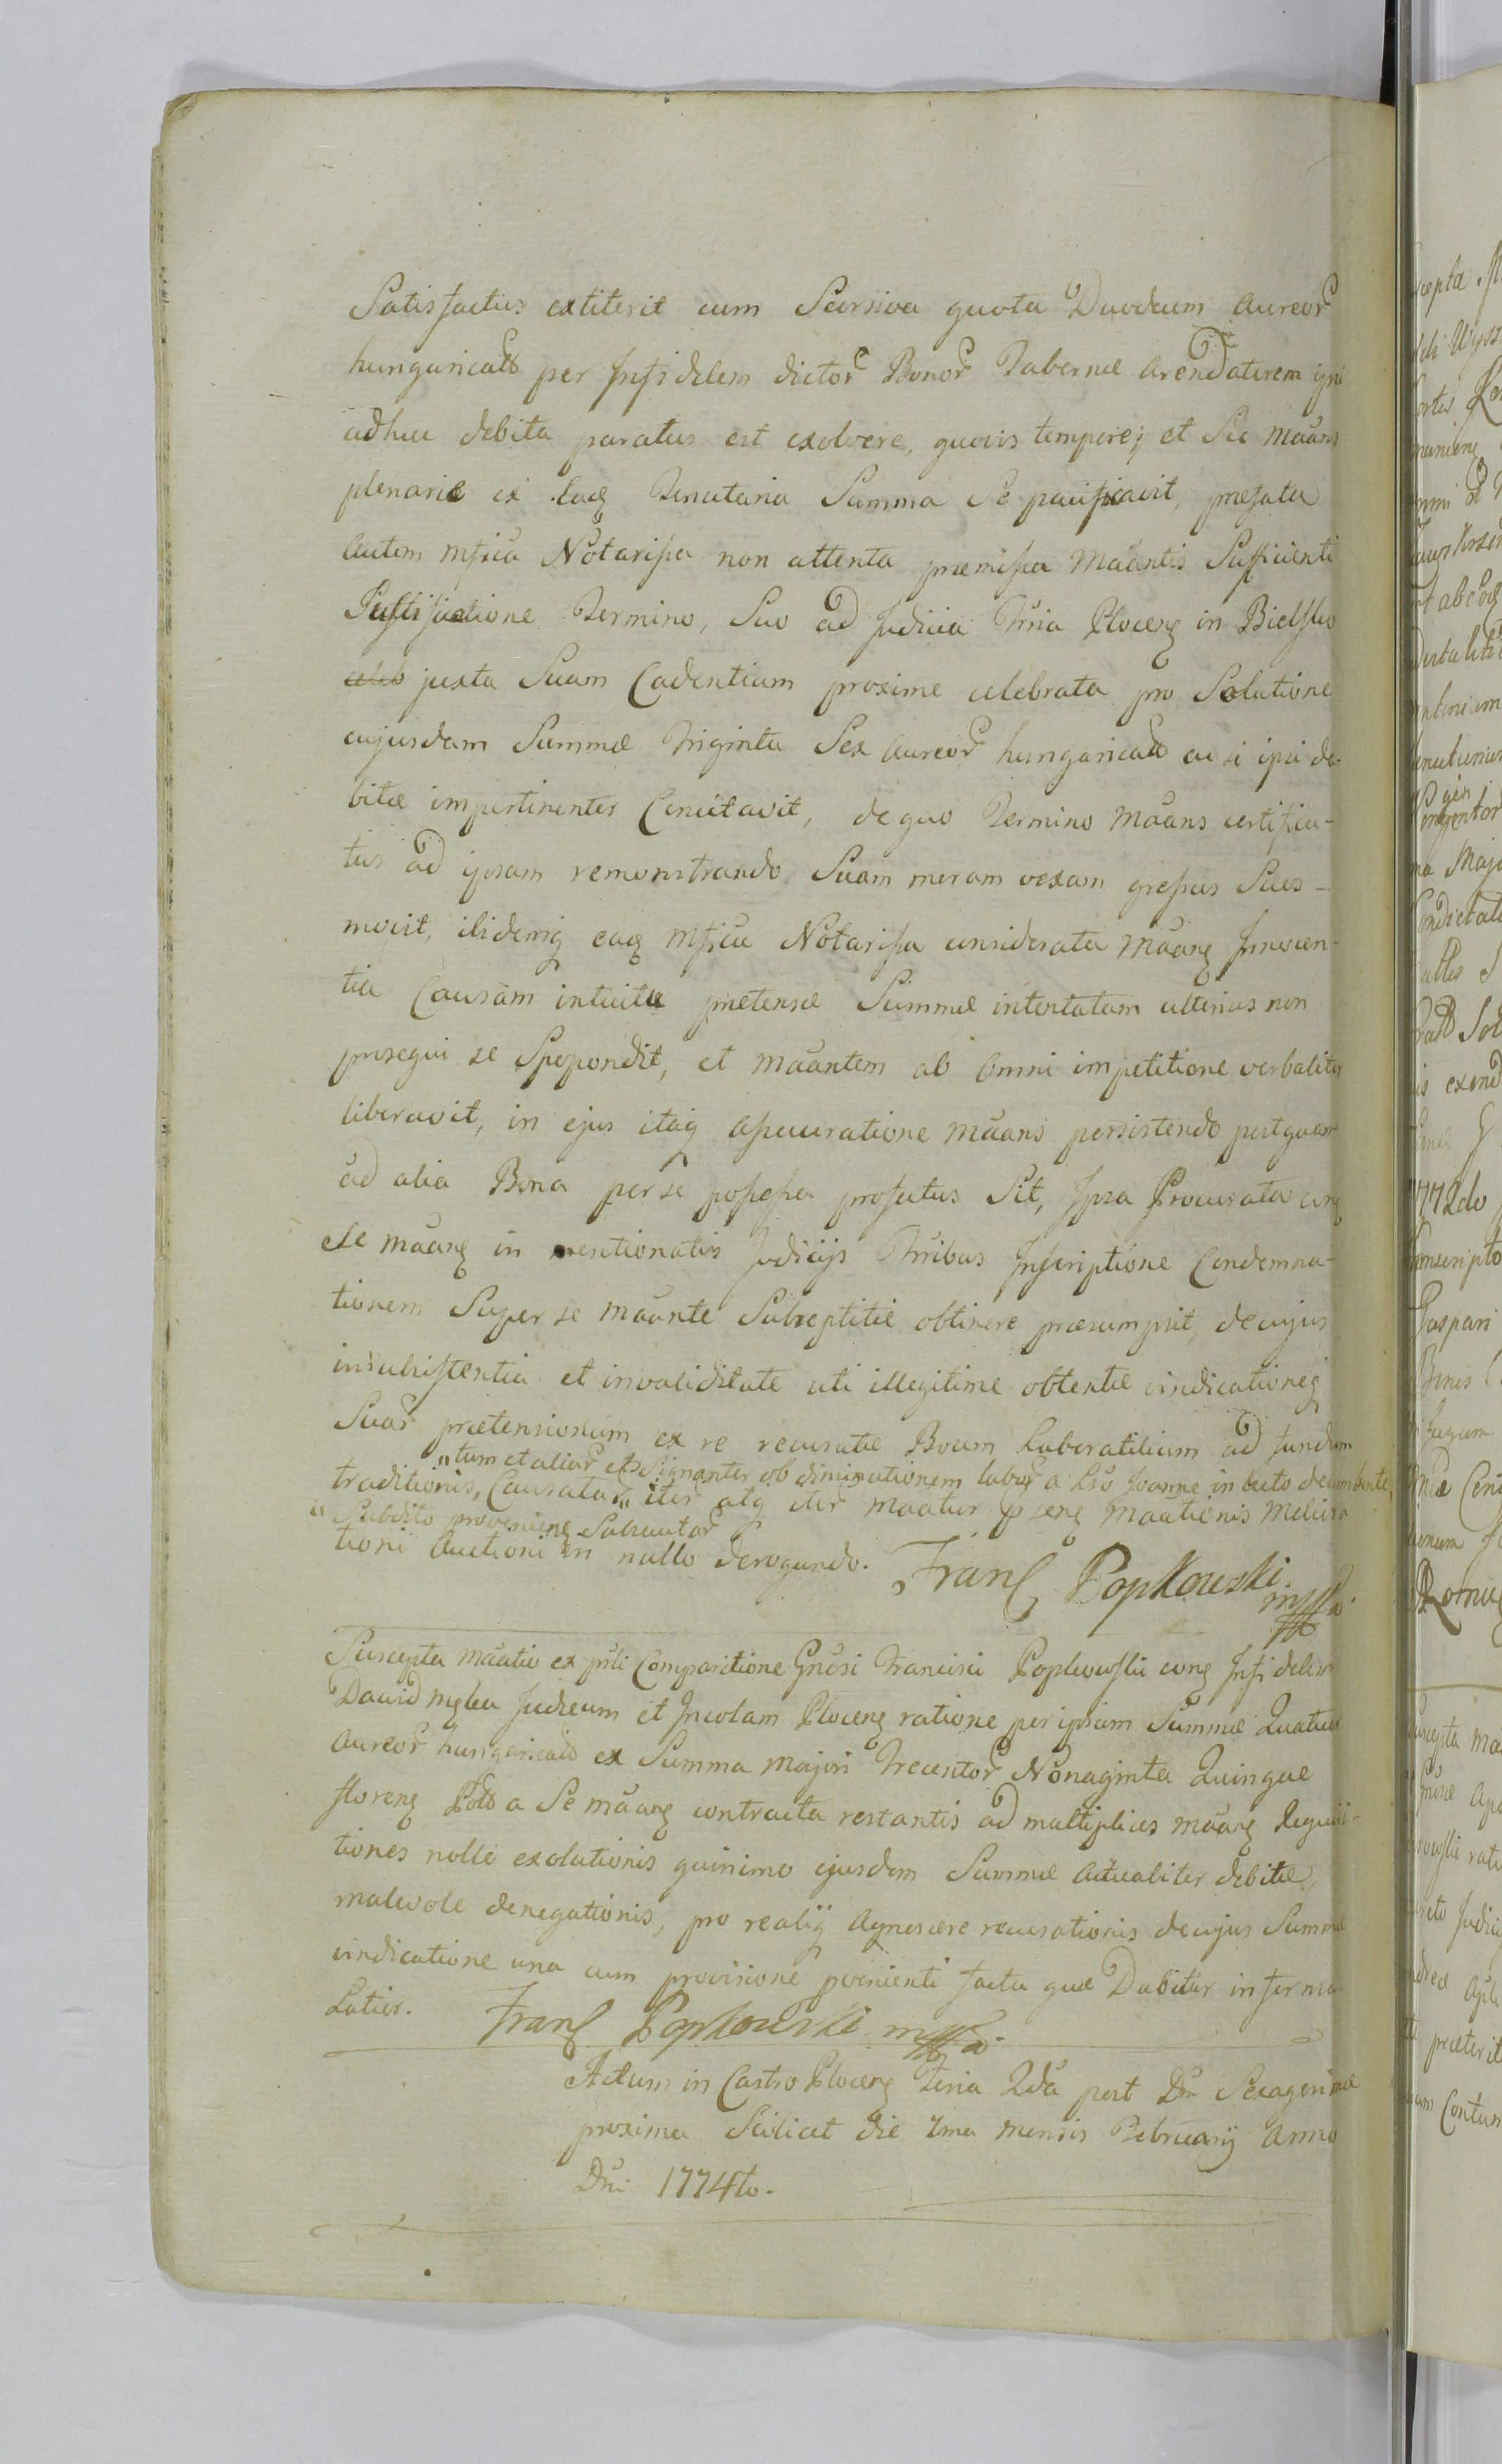 Satisfactus extiterit cum Scorsiva quota Duodecim Aureor
hungaricalb per Infidelem dictor Bonor Tabernæ Arendatorem ipsi
adhuc debita paratus est exolvere, quovis tempore; et Sic Mãans
plenarie ex eaq Tenutaria Summa Se pacificavit, præfata
Autem Mfica Notarissa non attenta præmissa Mãantis Sufficienti
Justificatione Termino, Suo ad Judicia Trria Plocen in Bielsko
juxta Suam Cadentiam proxime celebrata pro Solutione
cujusdam Summæ Triginta Sex Aureor hungarical ac si ipsi de-
bitæ impertinenter Concitavit, de quo Termino Mãans certifica-
tus ad ipsam remonstrando Suam meram vexam gressus Suos
movit, ibidemq eaq Mfica Notarissa considerata Mãan Innocen-
tia Causam intuitu prætensæ Summæ intentatam ulterius non
prosequi se Spopondit, et Mãantem ab Omni impetitione verbaliter
liberavit, in ejus itaq Assecuratione Mãans persistendo postquam
ad alia Bona per se possessa profectus Sit, Ipsa Procurata con
Se Mãan in mentionatis Judicijs Trribus Inscriptione Condemna-
tionem Super se Mãante Subreptitie obtinere præsumpsit, de cujus
insubsistentia et invaliditate uti illegitime obtentæ vindicationeq
Suar prætensionum ex re recusatæ Boum Laboratilium ad fundum
"tum et alior et Signanter ob diminutionem labor a Lrō Joanne in lecto decumbente,
traditionis, Causatar" iter atq iter Mãatur psen Mãationis Meliora
"Subdito provenien Subsecutar
tioni Auctioni in nullo derogando. Franc Popkowski mppa
Suscepta Mãatio ex psti Comparitione Gnosi Francisci Popkowski con Infidelem
David Judæum et Incolam Plocen ratione per ipsum Summæ Quatuor
Aureor hungarical ex Summa Majori Trecentor Nonaginta Quinque
floren Pol a Se Mãan contracta restantis ad multiplices Mãan Requisi-
tiones nolle exolutionis quinimo ejusdem Summæ Actualiter debitæ,
malevole denegationis, pro realiq Agnoscere recusationis de cujus Summæ
vindicatione una cum provisione provenienti facta quæ Dabitur in forma
Latior. Franc Popkowski mppa
Actum in Castro Plocen Feria 2da post Dn Sexagesimæ
proxima Scilicet die 7ma mensis Februarij Anno
Dni 1774to.